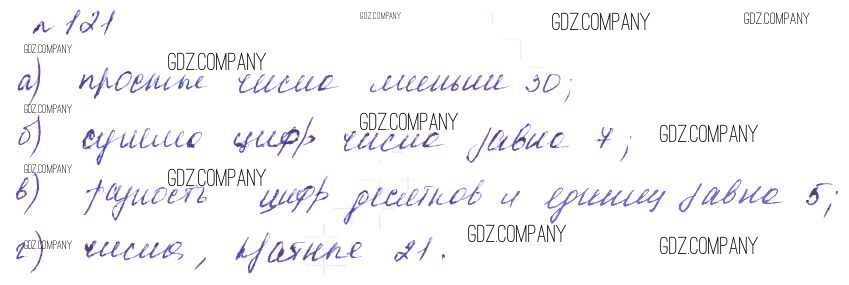 № 121
GDZ.COMPANY GDZ.COMPANY GDZ.COMPANY
GDZ.COMPANY GDZ.COMPANY
а) простые числа меньши 30;
GDZ.COMPANY GDZ.COMPANY GDZ.COMPANY
б) сумма цифр числа равна 7;
GDZ.COMPANY GDZ.COMPANY
в) разность цифр десятков и единиц равна 5;
GDZ.COMPANY GDZ.COMPANY GDZ.COMPANY
г) числа, кратные 21.